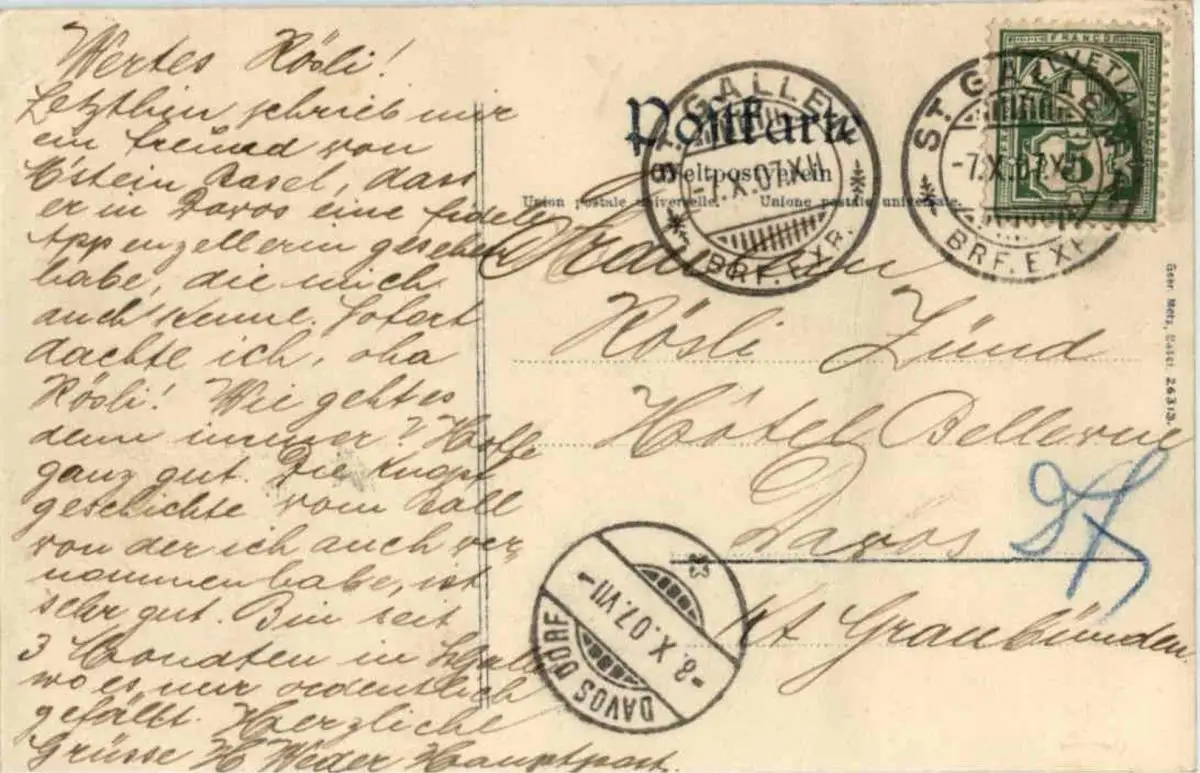 Wertes Rösli!
Letzthin schrieb mir
ein Freund von
Mstein Basel, dass
er in Davos eine fidele
Appenzellerin gesehen
habe, die mich
auch kenne. Sofort
dachte ich, oha
Rösli! Wie geht es
denn immer? Hoffe
ganz gut. Die
geschichte vom Ball
von der ich auch ver„
nommen habe, ist
sehr gut. Bin seit
3 Monaten in St.Gallen
wo es mir ordentlich
gefällt. Herzliche
Grüsse H. Weder Hauptpost.
Postkarte
Weltpostverein
Union postale universelle. Unione postale universale.
Fräulein
Rösli Zünd
Hôtel Bellevue
Davos
Kt Graubünden
ST. GALLEN
-7.X.07.XII
BRF. EXP.
ST. GALLEN
-7.X.07.XII
BRF. EXP.
FRANCO
HELVETIA
5
DAVOS DORF
-8.X.07.VII-
Gebr. Metz, Basel 26313.